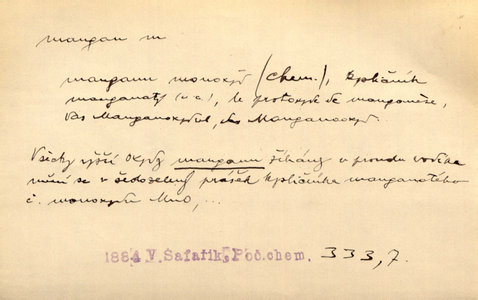 mangan m
manganu monoxyd (chem.), kysličník
manganatý (v. a.), le protoxyde de manganèse,
das Manganoxydul, das Manganooxyd.
Všecky vyšší oxydy manganu žíhány v proudu vodíka
mění se v šedozelený prášek kysličníka manganatého
č. monoxydu MnO, ...
1884 V. Šafařík, Poč. chem. 333,7.